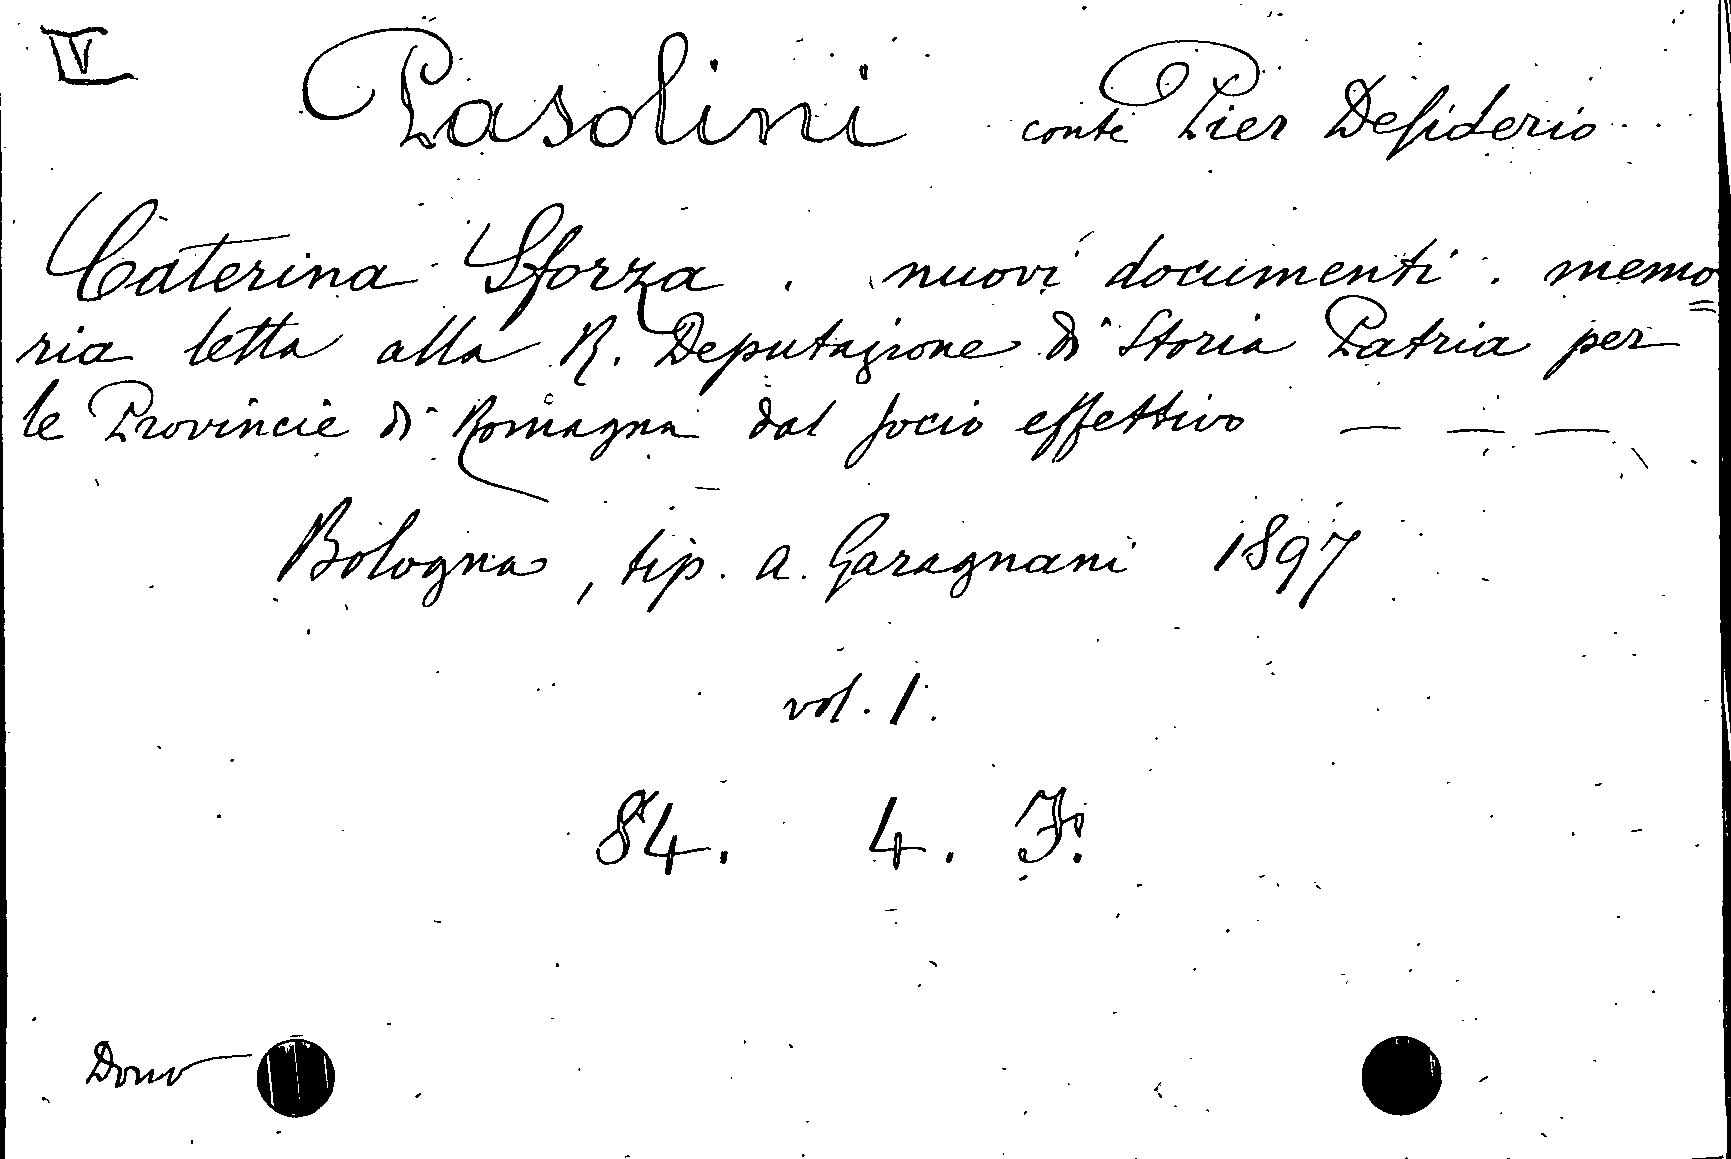 IV
Pasolini conte Pier Desiderio
Caterina Sforza. nuovi documenti. memo=
ria letta alla R. Deputazione di Storia Patria per
le Provincie di Romagna dal socio effettivo — — —
Bologna, tip. A. Garagnani 1897
vol. 1.
84. 4. F.
Dono